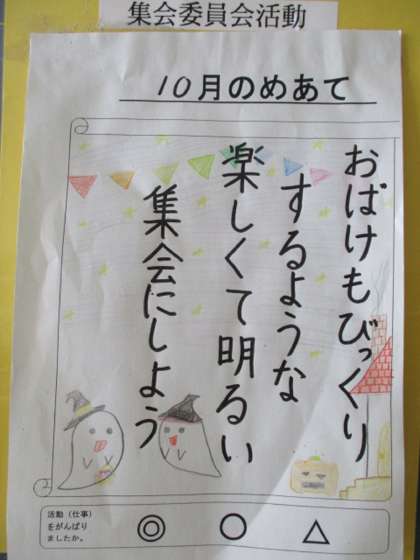 集会委員会活動
10月のめあて
おばけもびっくり
するような
楽しくて明るい
集会にしよう
活動（仕事）
をがんばり
ましたか。
◎ ○ △